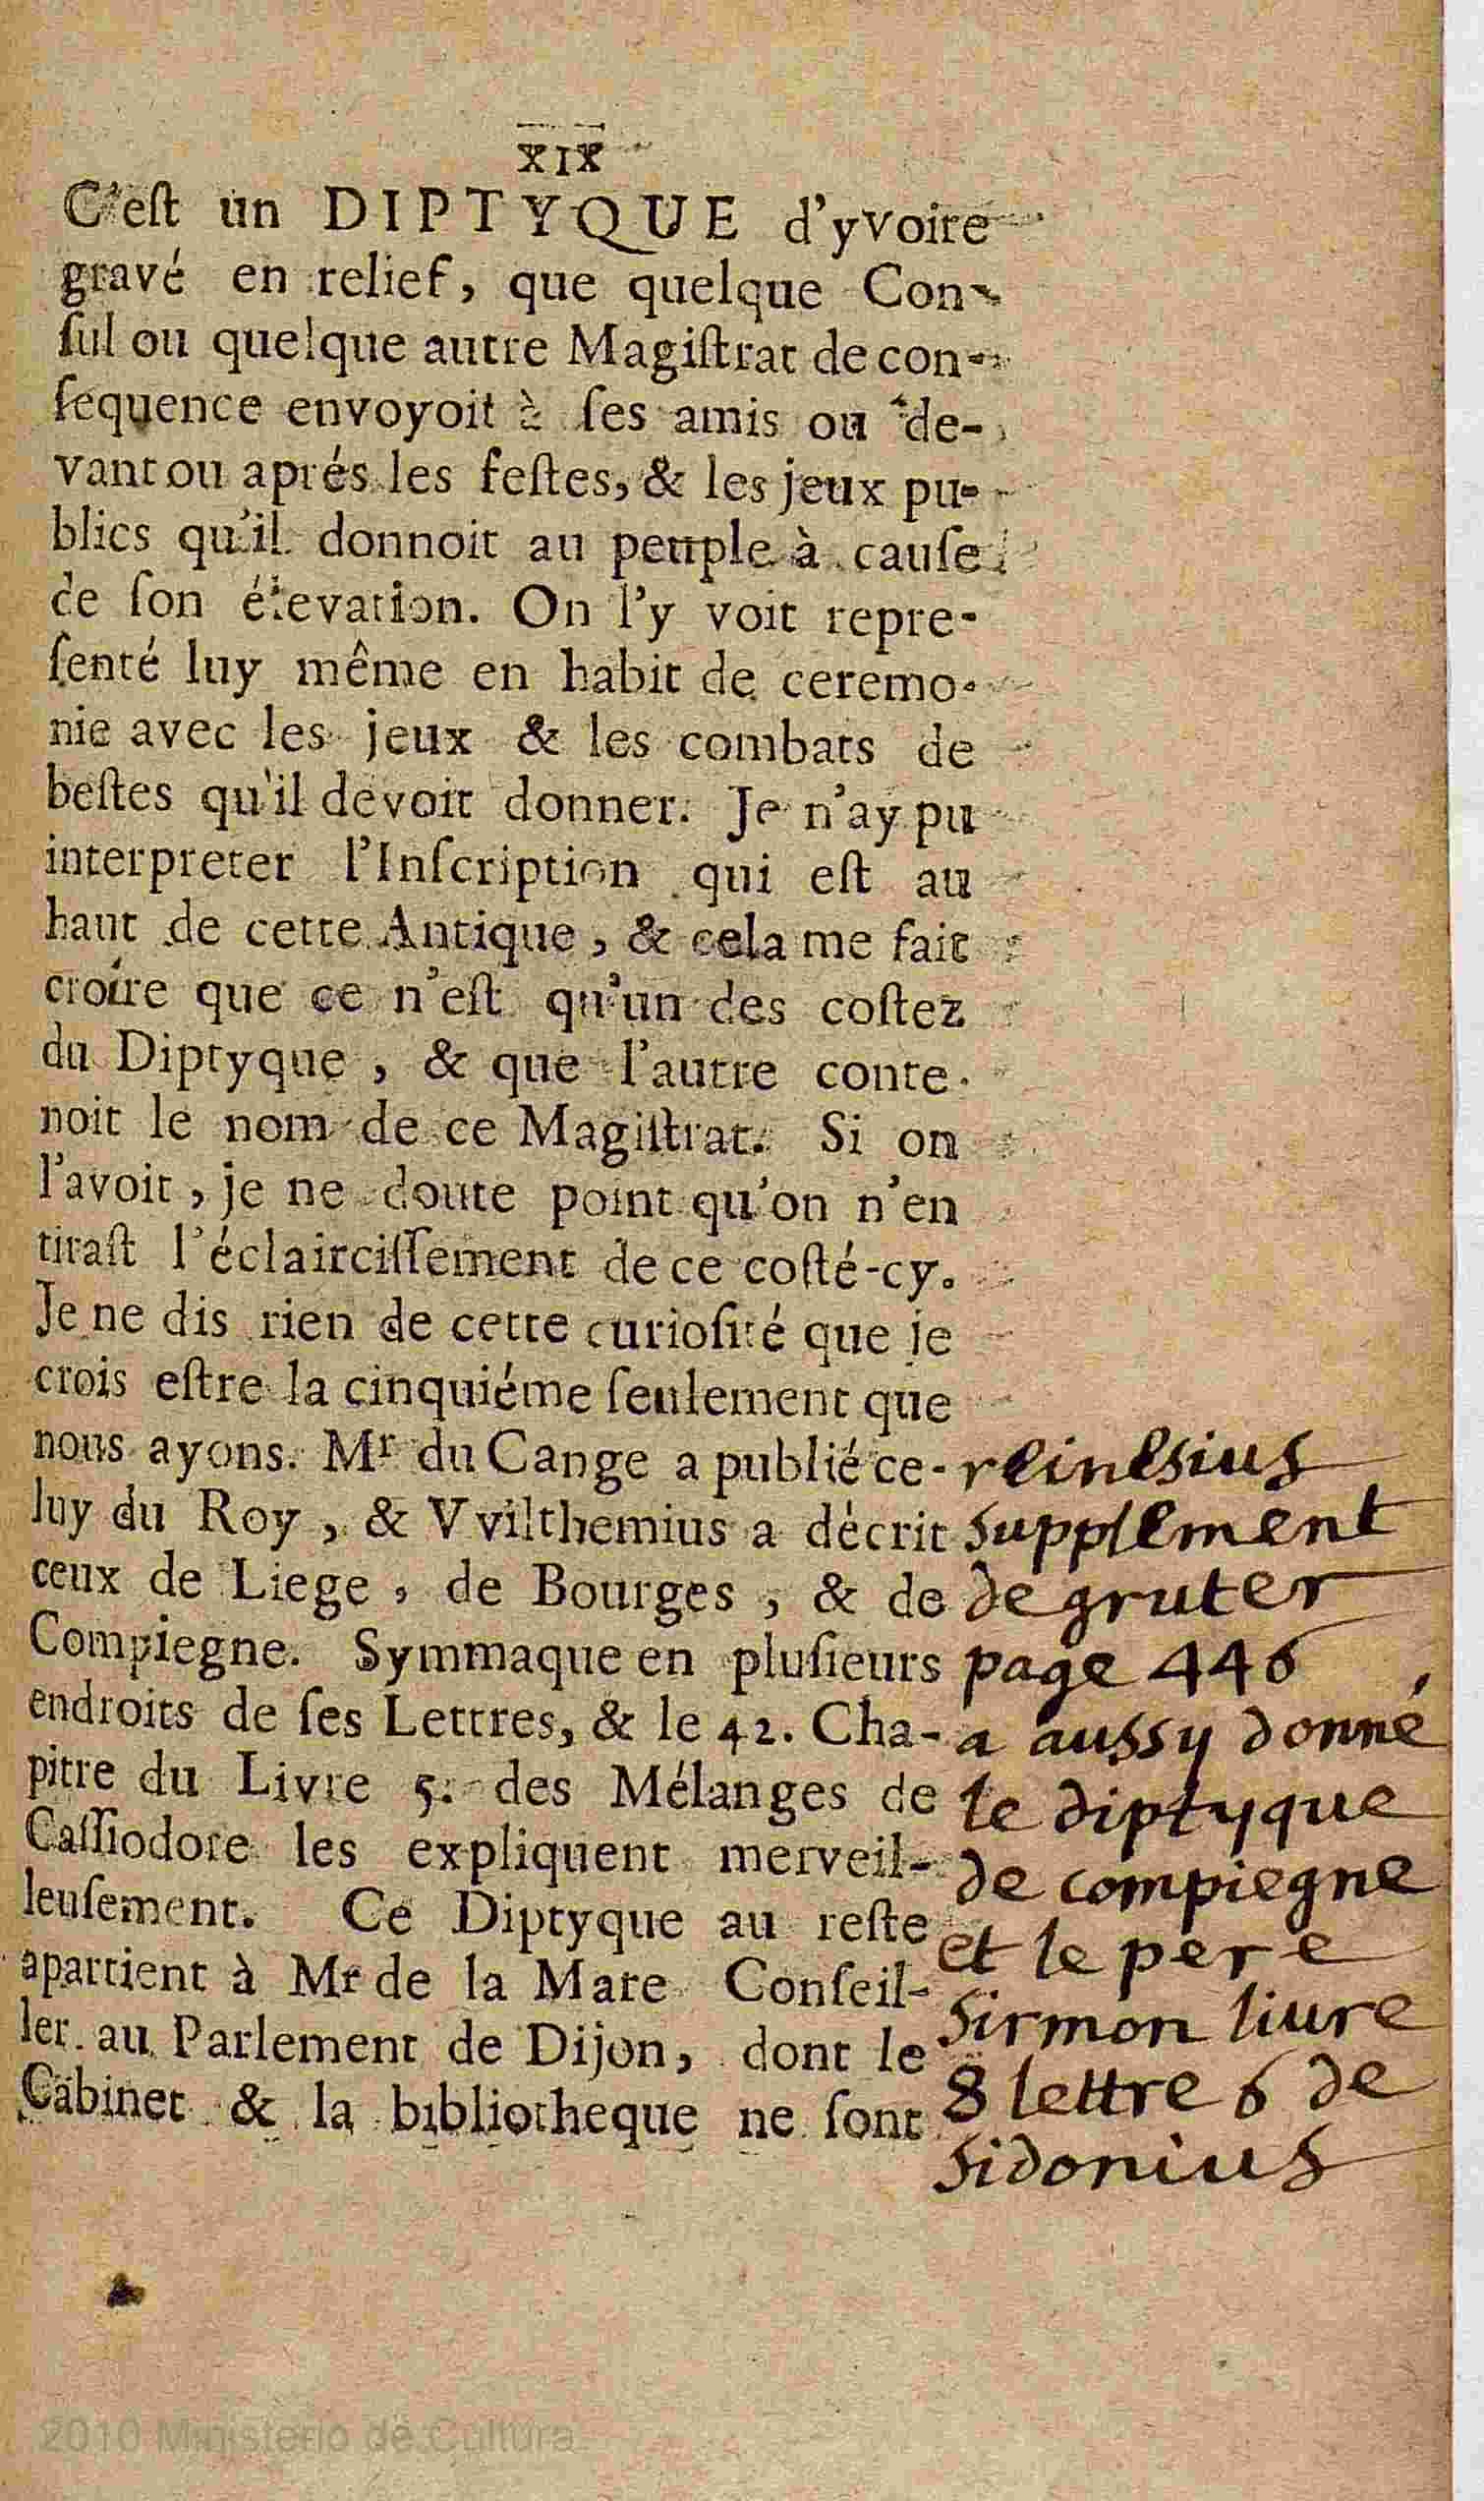 XIX
C'eſt un DIPTYQUE d'yvoire
gravé en relief, que quelque Con-
ſul ou quelque autre Magiſtrat de con-
ſequence envoyoit à ſes amis ou de-
vant ou aprés les feſtes, & les jeux pu-
blics qu'il donnoit au peuple à cauſe
de ſon élevation. On l'y voit repre-
ſenté luy même en habit de ceremo-
nie avec les jeux & les combats de
beſtes qu'il devoit donner. Je n'ay pu
interpreter l'Inſcription qui eſt au
haut de cette Antique, & cela me fait
croire que ce n'eſt qu'un des coſtez
du Diptyque, & que l'autre conte-
noit le nom de ce Magiſtrat. Si on
l'avoit, je ne doute point qu'on n'en
tiraſt l'éclairciſſement de ce coſté-cy.
Je ne dis rien de cette curioſité que je
crois eſtre la cinquiéme ſeulement que
nous ayons. Mr du Cange a publié ce-
luy du Roy, & Vvilthemius a décrit
ceux de Liege, de Bourges, & de
Compiegne. Symmaque en pluſieurs
endroits de ſes Lettres, & le 42. Cha-
pitre du Livre 5. des Mélanges de
Caſſiodore les expliquent merveil-
leuſement. Ce Diptyque au reſte
apartient à Mr de la Mare Conſeil-
ler au Parlement de Dijon, dont le
Cabinet & la bibliotheque ne ſont
reinesius
supplement
de gruter
page 446
a aussy donné
le diptyque
de compiegne
et le pere
sirmon liure
8 lettre 6 de
sidonius
2010 Ministerio de Cultura